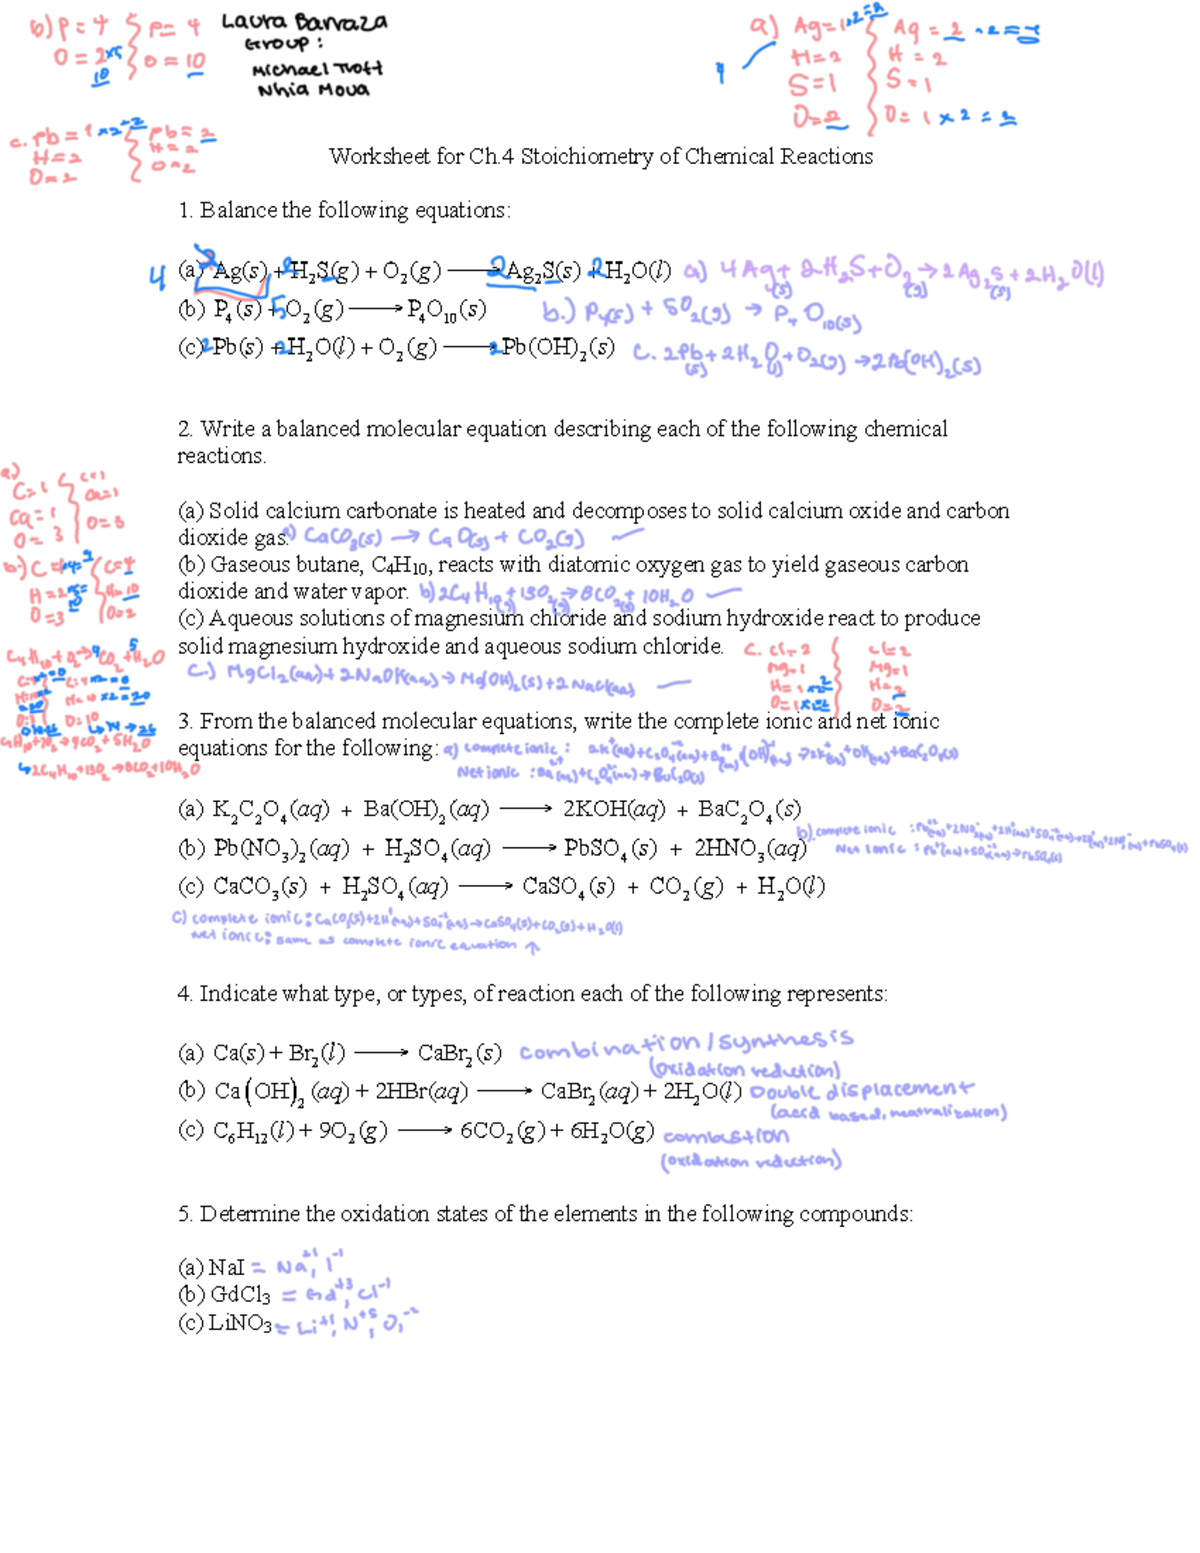 b) P = 4 P= 4
O = 2 x5 O = 10
10
Laura Barraza
Group:
Michael Trott
Nhia Moua
a) Ag=1 x2=2 Ag = 2 x2=4
H=2 H = 2
S=1 S=1
O=2 O=1 x 2 = 2
c. Pb=1 x2=2 Pb= 2
H=2 H=2
O=2 O=2
Worksheet for Ch.4 Stoichiometry of Chemical Reactions
1. Balance the following equations:
4 (a) 2 Ag(s) + 2 H₂S(g) + O₂(g) ⟶ 2 Ag₂S(s) 2 H₂O(l) a) 4Ag(s) + 2H₂S + O₂(g) → 2Ag₂S(s) + 2H₂O(l)
(b) P₄(s) + 5 O₂(g) ⟶ P₄O₁₀(s) b.) P₄(s) + 5O₂(g) → P₄O₁₀(s)
(c) 2 Pb(s) + 2 H₂O(l) + O₂(g) ⟶ 2 Pb(OH)₂(s) C. 2Pb(s) + 2H₂O(l) + O₂(g) → 2Pb(OH)₂(s)
2. Write a balanced molecular equation describing each of the following chemical
reactions.
a)
C=1 C=1
Ca=1 Ca=1
O=3 O=3
(a) Solid calcium carbonate is heated and decomposes to solid calcium oxide and carbon
dioxide gas. a) CaCO₃(s) → CaO(s) + CO₂(g)
(b) Gaseous butane, C4H10, reacts with diatomic oxygen gas to yield gaseous carbon
dioxide and water vapor. b) 2C₄H₁₀(g) + 13O₂(g) → 8CO₂(g) + 10H₂O
(c) Aqueous solutions of magnesium chloride and sodium hydroxide react to produce
solid magnesium hydroxide and aqueous sodium chloride.
C.) MgCl₂(aq) + 2NaOH(aq) → Mg(OH)₂(s) + 2NaCl(aq)
c. Cl=2 Cl=2
Mg=1 Mg=1
H=1 x2 H=2
O=1 x2 O=2
C₄H₁₀ + O₂ → 4CO₂ + 5H₂O
↳ 2C₄H₁₀ + 13O₂ → 8CO₂ + 10H₂O
3. From the balanced molecular equations, write the complete ionic and net ionic
equations for the following: a) complete ionic :
Net ionic :
(a) K₂C₂O₄(aq) + Ba(OH)₂(aq) ⟶ 2KOH(aq) + BaC₂O₄(s)
b) complete ionic :
(b) Pb(NO₃)₂(aq) + H₂SO₄(aq) ⟶ PbSO₄(s) + 2HNO₃(aq)
Net ionic :
(c) CaCO₃(s) + H₂SO₄(aq) ⟶ CaSO₄(s) + CO₂(g) + H₂O(l)
C) complete ionic: CaCO₃(s) + 2H⁺(aq) + SO₄⁻²(aq) → CaSO₄(s) + CO₂(g) + H₂O(l)
Net ionic: same as complete ionic equation ↑
4. Indicate what type, or types, of reaction each of the following represents:
(a) Ca(s) + Br₂(l) ⟶ CaBr₂(s) combination / synthesis
(oxidation reduction)
(b) Ca(OH)₂(aq) + 2HBr(aq) ⟶ CaBr₂(aq) + 2H₂O(l) Double displacement
(acid based, neutralization)
(c) C₆H₁₂(l) + 9O₂(g) ⟶ 6CO₂(g) + 6H₂O(g) combustion
(oxidation reduction)
5. Determine the oxidation states of the elements in the following compounds:
(a) NaI = Na⁺¹, I⁻¹
(b) GdCl3 = Gd⁺³, Cl⁻¹
(c) LiNO3 = Li⁺¹, N⁺⁵, O,⁻²